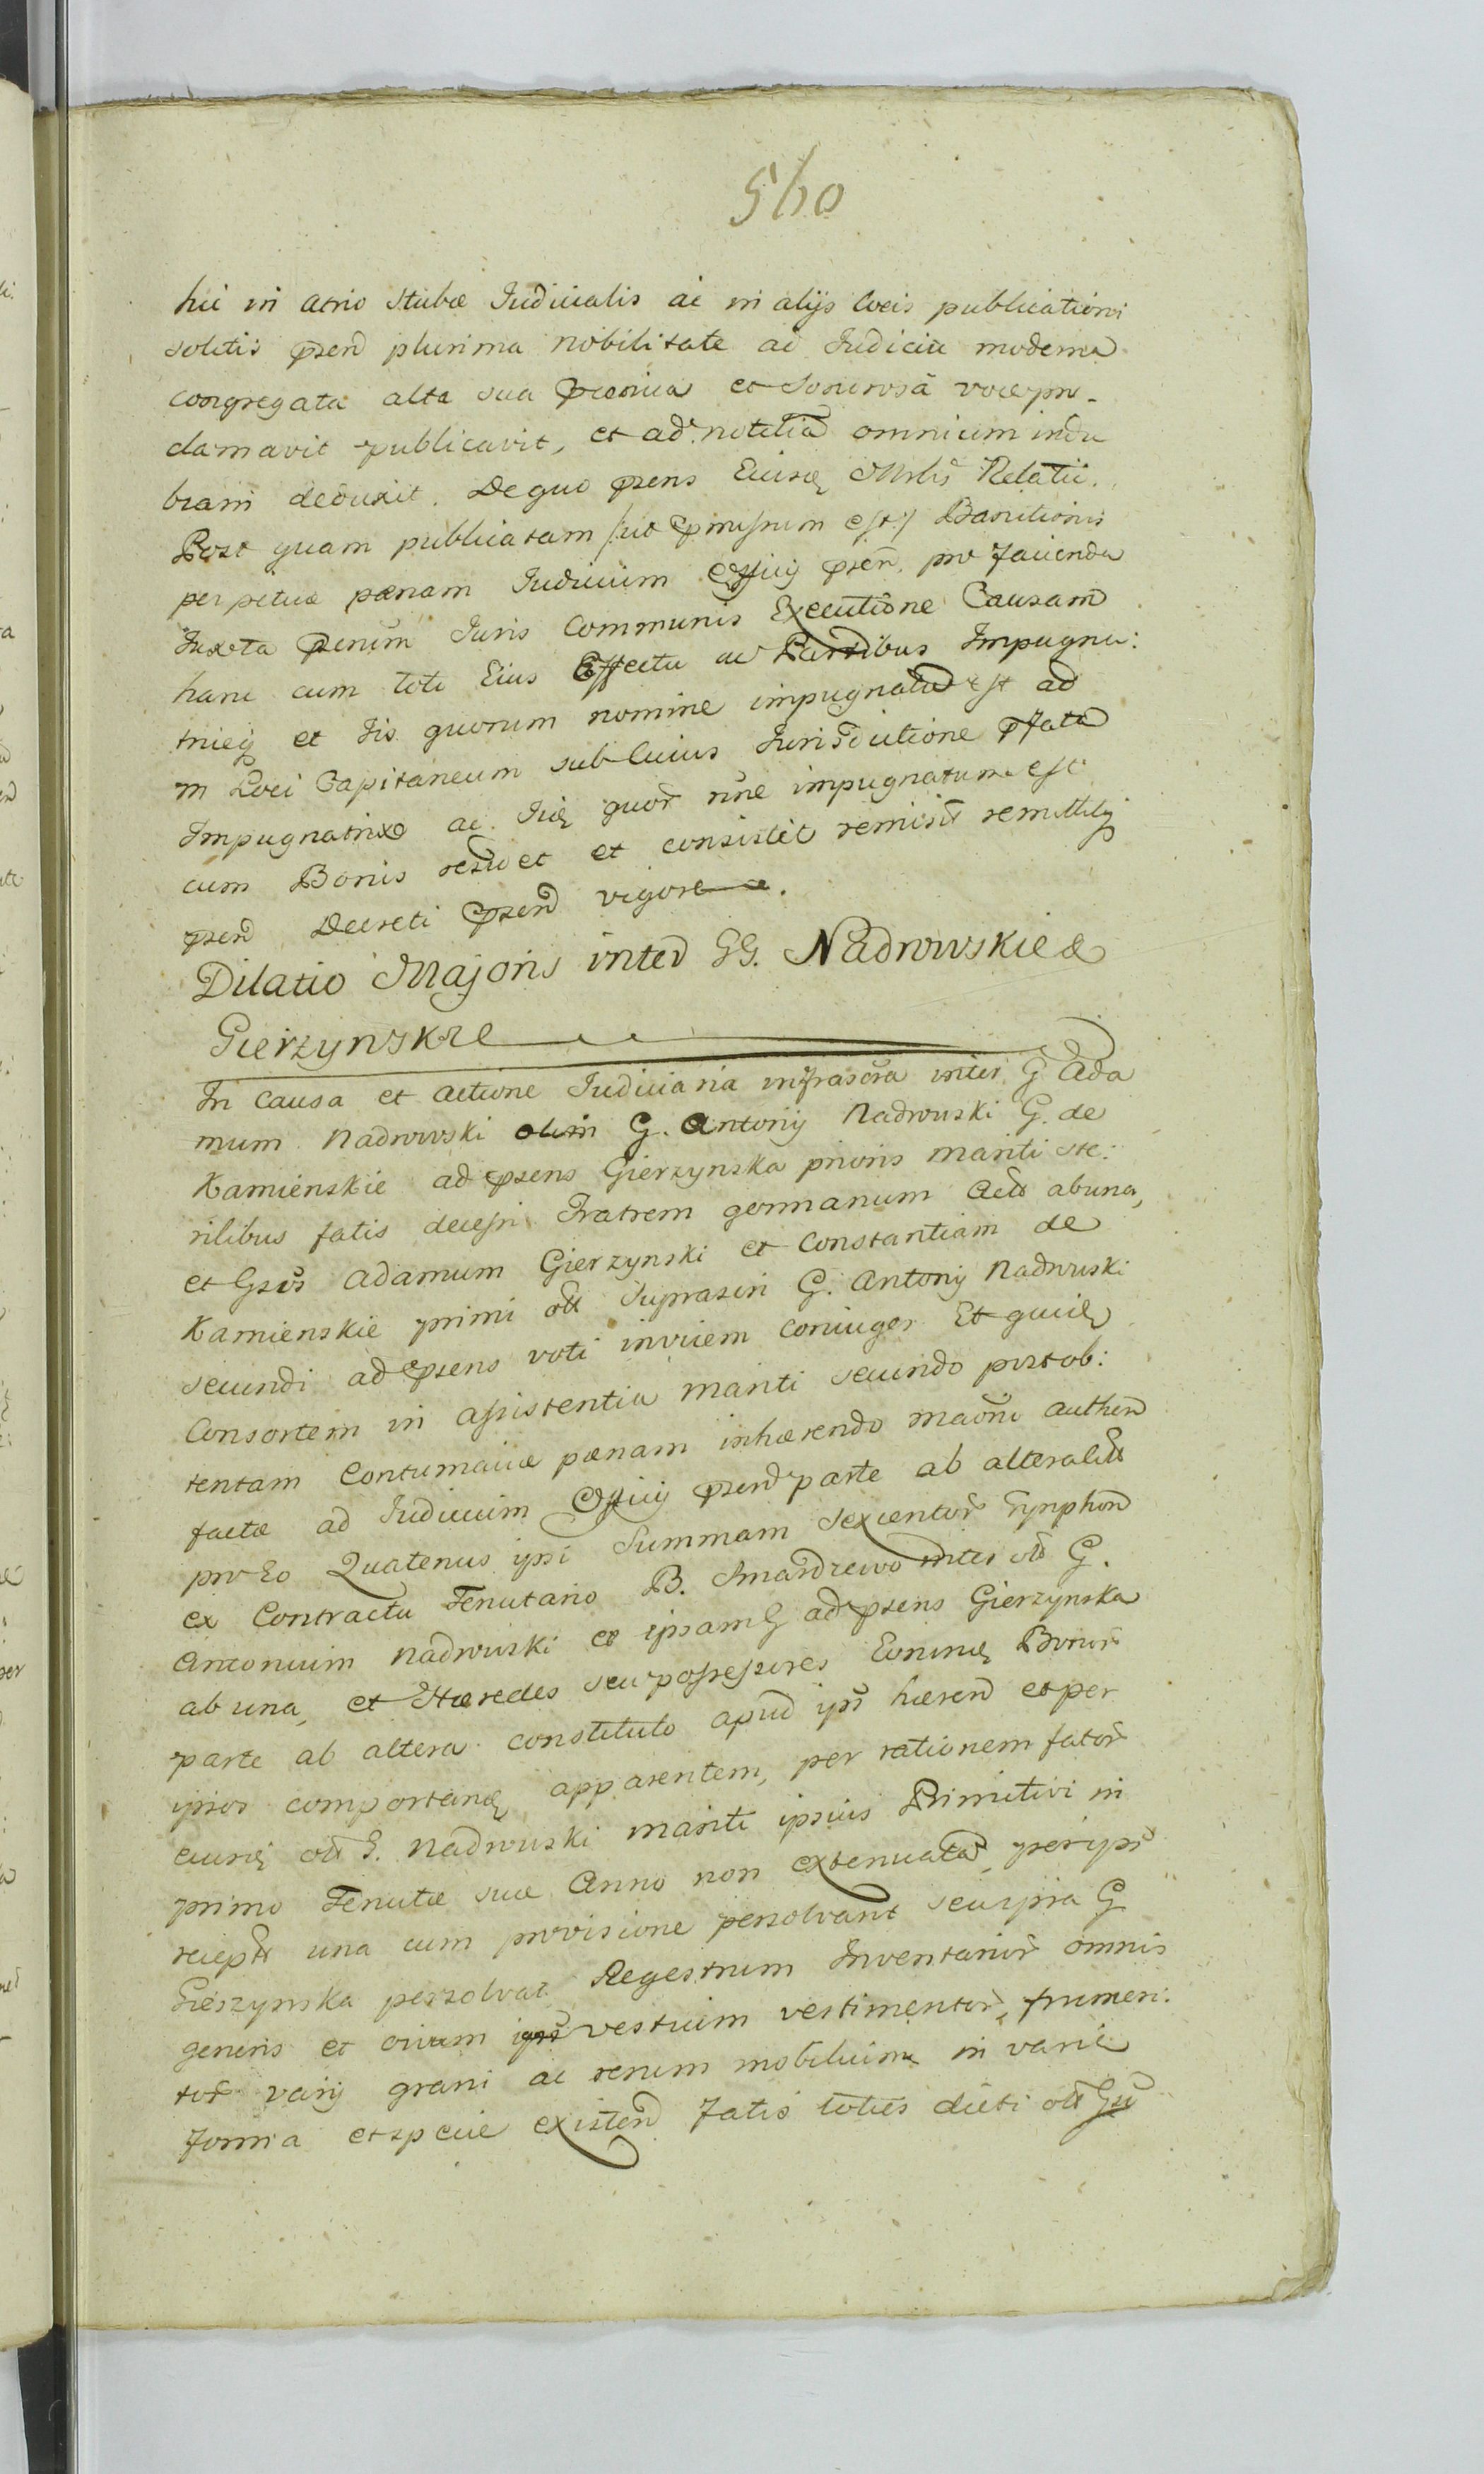 560
hic in atrio Stubæ Judicialis ac in alijs locis publicationi
solitis præsen plurima nobilitate ad Judicia moderna
congregata alta sua præconica et Sonorosa voce pro-
clamavit publicavit, et ad notitiã omnium indu
biam deduxit. De quo præsens Eiusq Mrlis Relatii.
Post quam publicatam /:ut præmissum est:/ Banitionis
perpetuæ pænam Judicium Officij præsen, pro facienda
Juxta Juris Communis Executione Causam
hanc cum toto Eius Effectu ac Partibus Impugna:
tricq et Iis quorum nomine impugnatũ est ad
m Loci Capitaneum sub cuius Jurisdictione pfata
Impugnatrix ac quor nne impugnatum est
cum Bonis residet et consistit remisit remittitq
præsen Decreti præsen vigore.
Dilatio Majoris inter GG. Nadrowskie &
Gierzynskie
In Causa et Actione Judiciaria infrascra inter G Ada
mum Nadrowski olim G. Antonij Nadrowski G. de
Kamienskie ad præsens Gierzynska prioris mariti ste:
rilibus fatis decessi Fratrem germanum Act ab una,
et Gsos Adamum Gierzynski et Constantiam de
Kamienskie primi olt Suprascri G. Antonij Nadrowski
secundi ad præsens voti invicem coniuges Et quidę
Consortem in assistentia mariti secundo post ob:
tentam Contumaciæ pænam inhærendo maõni authen
factæ ad Judicium Officij præsen parte ab altera Citt
pro Eo Quatenus ipsi Summam Sexcentor Tynphon
ex Contractu Tenutario B. Smardzewo inter olt G.
Antonium Nadrowski et ipsamq ad præsens Gierzynska
ab una, et Hæredes seu possessores Eorundę Bonor
parte ab altera constituto apud ips hæren et per
ipsos comportandę apparentem, per rationem fator
eiusdę olt G. Nadrowski mariti ipsius Primitivi in
primo Tenutæ suæ Anno non extenuatã, per ips
recept una cum provisione persolvant seu ipsa G
Gierzynska persolvat Regestrum Inventarior omnis
generis et ovium vestium vestimentor, frumen:
tor varij grani ac rerum mobilium in varia
forma et specie existen fatis toties dicti olt Gsi